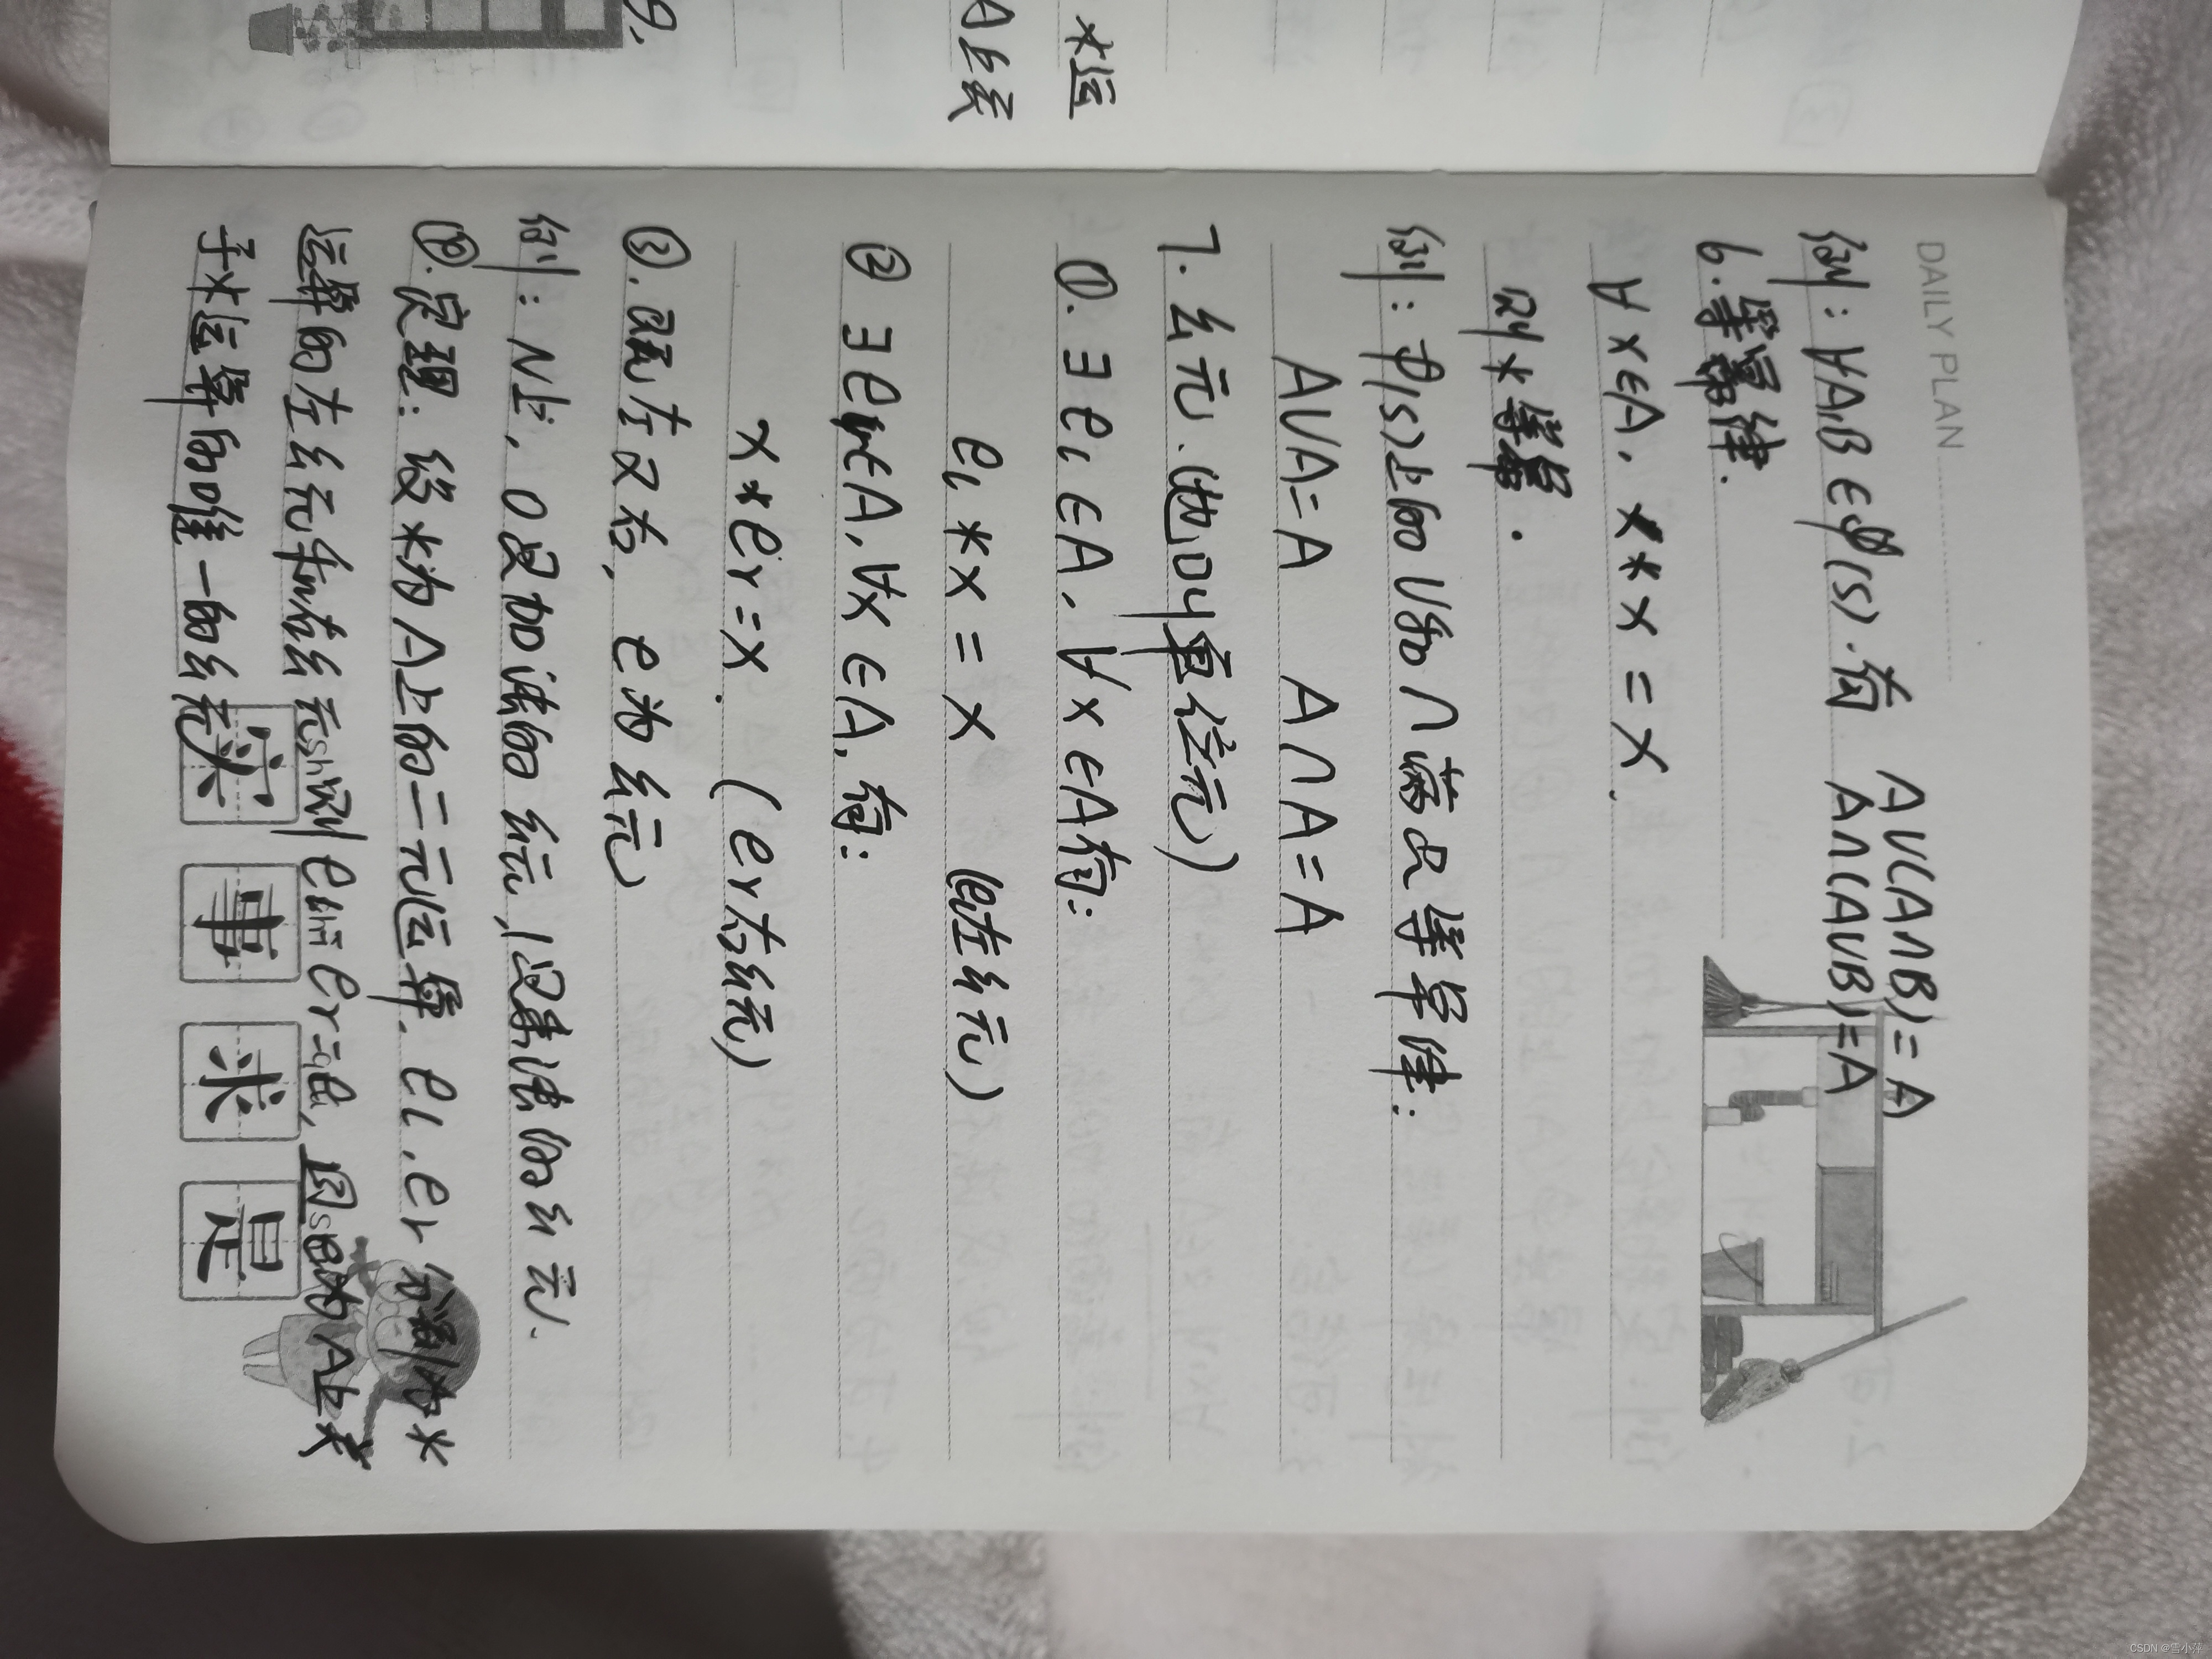 9.
A上定
*运
DAILY PLAN
例：∀A,B∈P(S).有 A∪(A∩B)=A
A∩(A∪B)=A
6.等幂律.
∀x∈A, x*x=x.
则*等幂.
例：P(S)上的∪和∩满足等幂律：
A∪A=A A∩A=A
7.幺元.(也叫单位元)
①.∃eι∈A,∀x∈A有：
eι*x=x (eι左幺元)
②∃er∈A,∀x∈A,有：
x*er=x. (er右幺元)
③.既左又右, e为幺元)
例：N上, 0是加法的幺元,1是乘法的幺元.
④.定理：设*为A上的二元运算.eι,er分别为*
运算的左幺元和右幺元,则eι=er=e,且e为A上关
于*运算的唯一的幺元
shí shì qiú shì
实事求是
CSDN @雪小萍